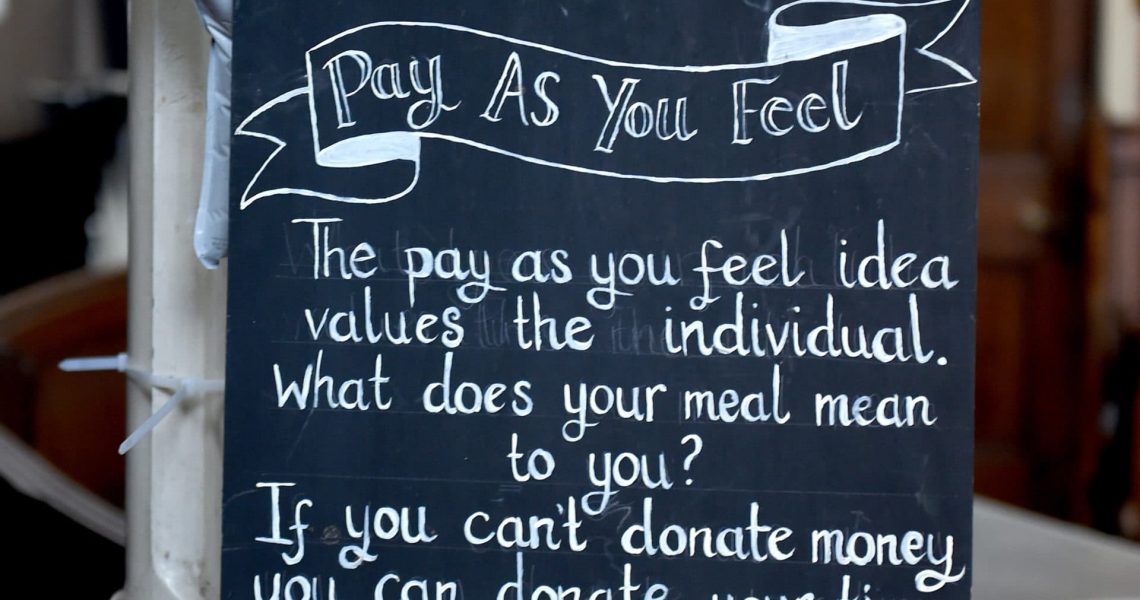 Pay As You Feel
The pay as you feel idea
values the individual.
What does your meal mean
to you?
If you can't donate money
you can donate your